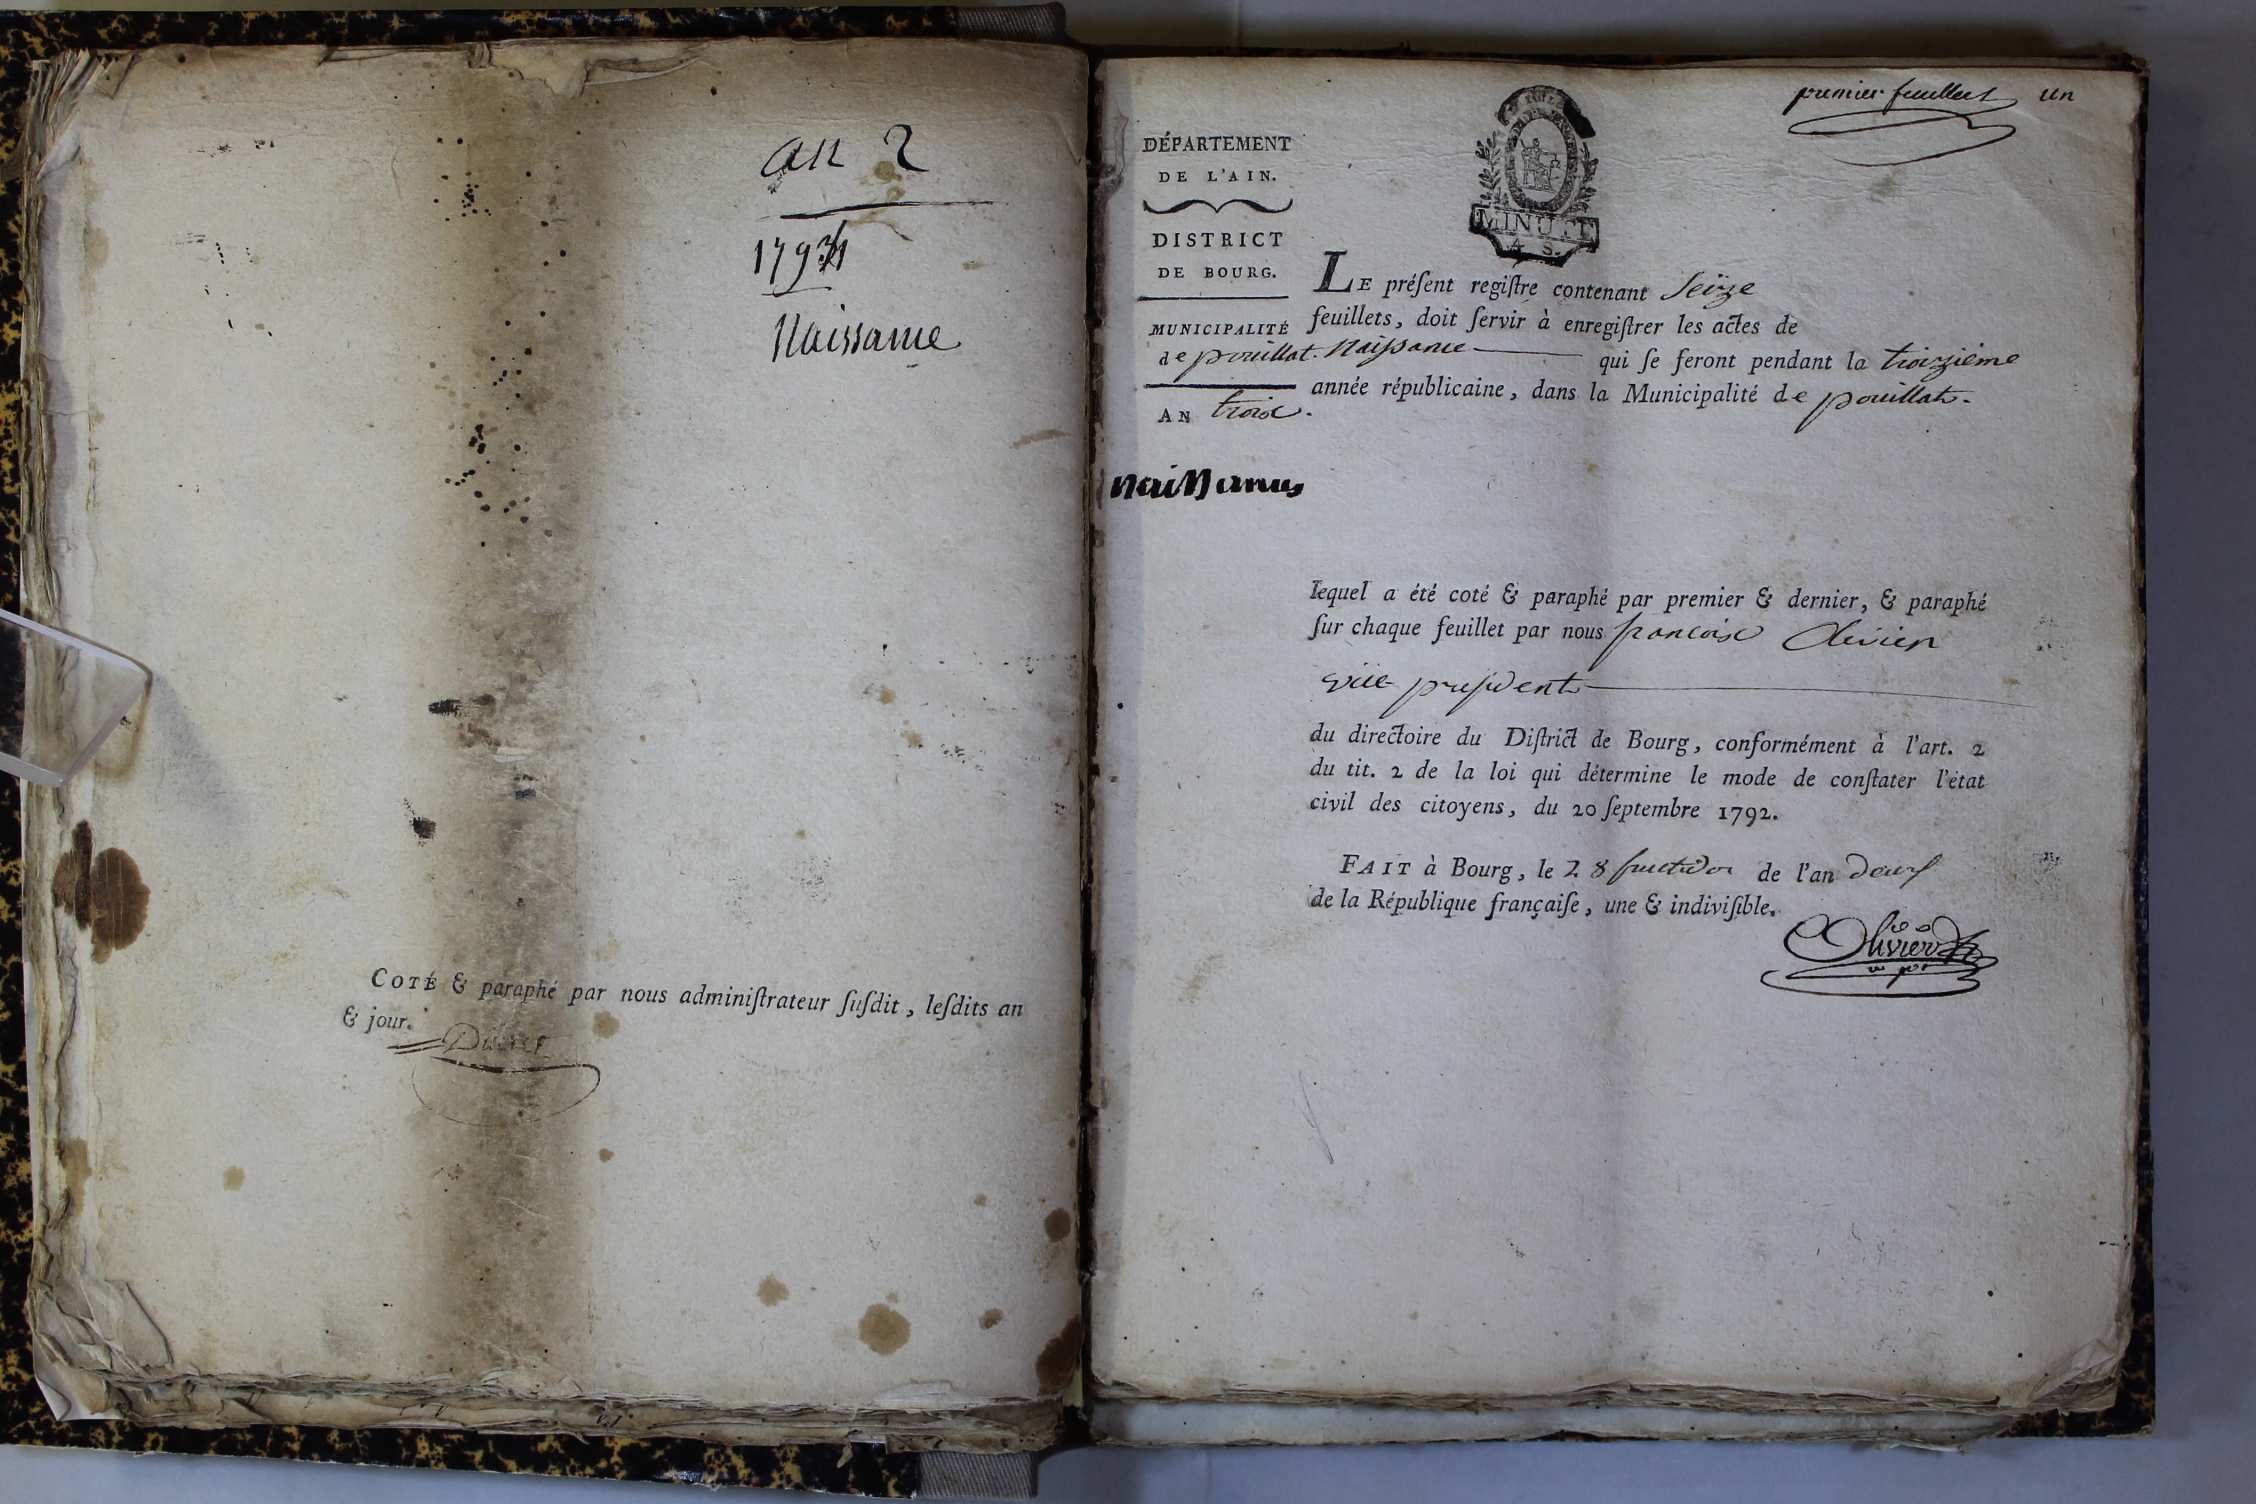 an 2
1793/4
Naissance
COTÉ & paraphé par nous adminiſtrateur ſuſdit, leſdits an
& jour.
premier feuillet un
DÉPARTEMENT
DE L'AIN.
DISTRICT
DE BOURG.
MUNICIPALITÉ
de pouillat.
AN troix.
MINUTE
4 S.
LE préſent regiſtre contenant Seize
feuillets, doit ſervir à enregiſtrer les actes de
Naiſſance qui ſe feront pendant la troiziéme
année républicaine, dans la Municipalité de pouillat.
Naissances
lequel a été coté & paraphé par premier & dernier, & paraphé
ſur chaque feuillet par nous francoix olivier
vice preſident
du directoire du Diſtrict de Bourg, conformément à l'art. 2
du tit. 2 de la loi qui détermine le mode de conſtater l'état
civil des citoyens, du 20 ſeptembre 1792.
FAIT à Bourg, le 28 fructidor de l'an deux
de la République françaiſe, une & indiviſible.
Olivier